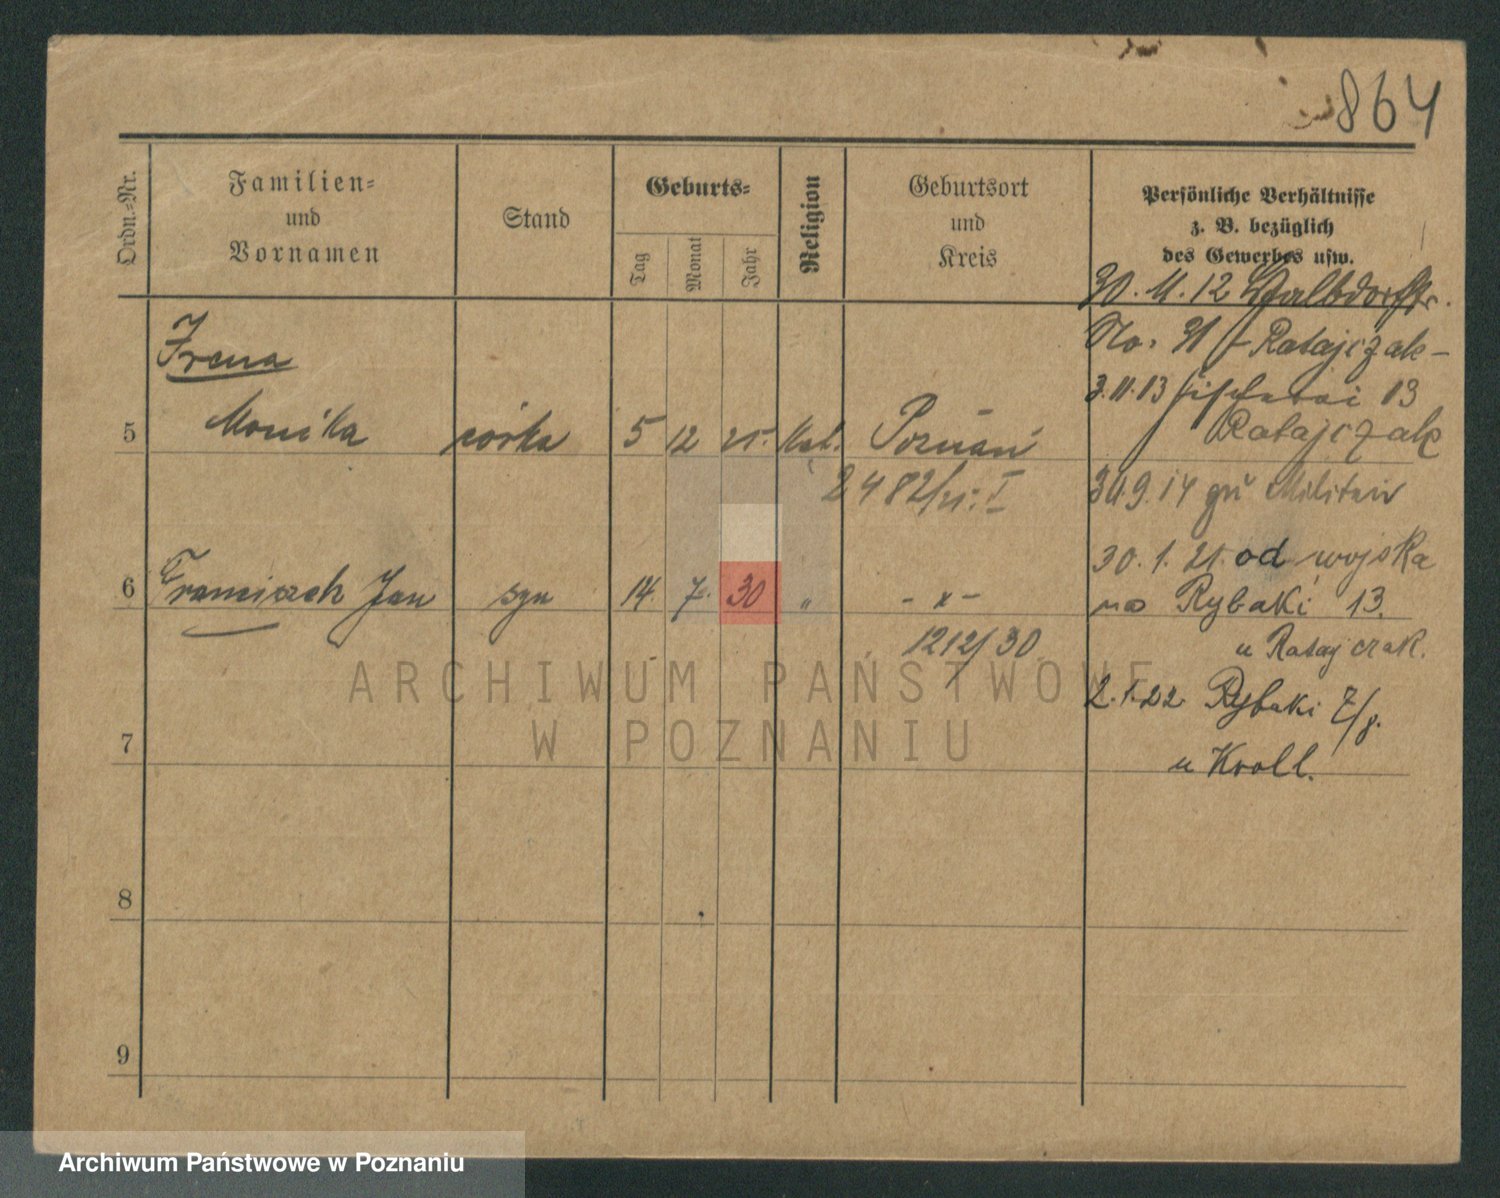 864
Ordn.-Nr.
Familien-
und
Vornamen
Stand
Geburts-
Tag
Monat
Jahr
Religion
Geburtsort
und
Kreis
Persönliche Verhältnisse
z. B. bezüglich
des Gewerbes usw.
30.11.12
No. 31 Ratajczak
3.11.13 Fischerei 13
Ratajczak
30.9.14 zu Militär
30.1.21. od wojska
na Rybaki 13.
u Ratajczak.
2.1.22 Rybaki 7/8.
u Kroll.
Irena
5 Monika córka 5 12 25. kat. Poznań
2482/25. I
6 Franciszek Jan syn 14. 7. 30 " - x -
1212/30
7
8
9
ARCHIWUM PAŃSTWOWE
W POZNANIU
Archiwum Państwowe w Poznaniu